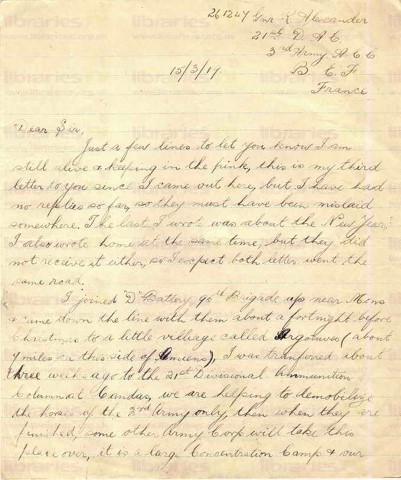 261247 Gnr K Alexander
21st D. A. C
3rd Army A C C
B. E. F
France
15/3/19.
Dear Sir,
Just a few lines to let you know I am
still alive & keeping in the pink, this is my third
letter to you since I came out here, but I have had
no replies so far, so they must have been mislaid
somewhere. The last I wrote was about the New Year,
I also wrote home at the same time, but they did
not receive it either, so I expect both letter went the
same road.
I joined "D" Battery, 96th Brigade up near Mons
& came down the line with them about a fortnight before
Christmas to a little village called (about
7 miles this side of Amiens), I was transfered about
three weeks ago to the 21st Divisional Ammunition
Column at Candas, we are helping to demobilize
the horses of the 3rd Army only, then when they are
finished, some other Army Corp will take this
place over, it is a large Concentration Camp & our